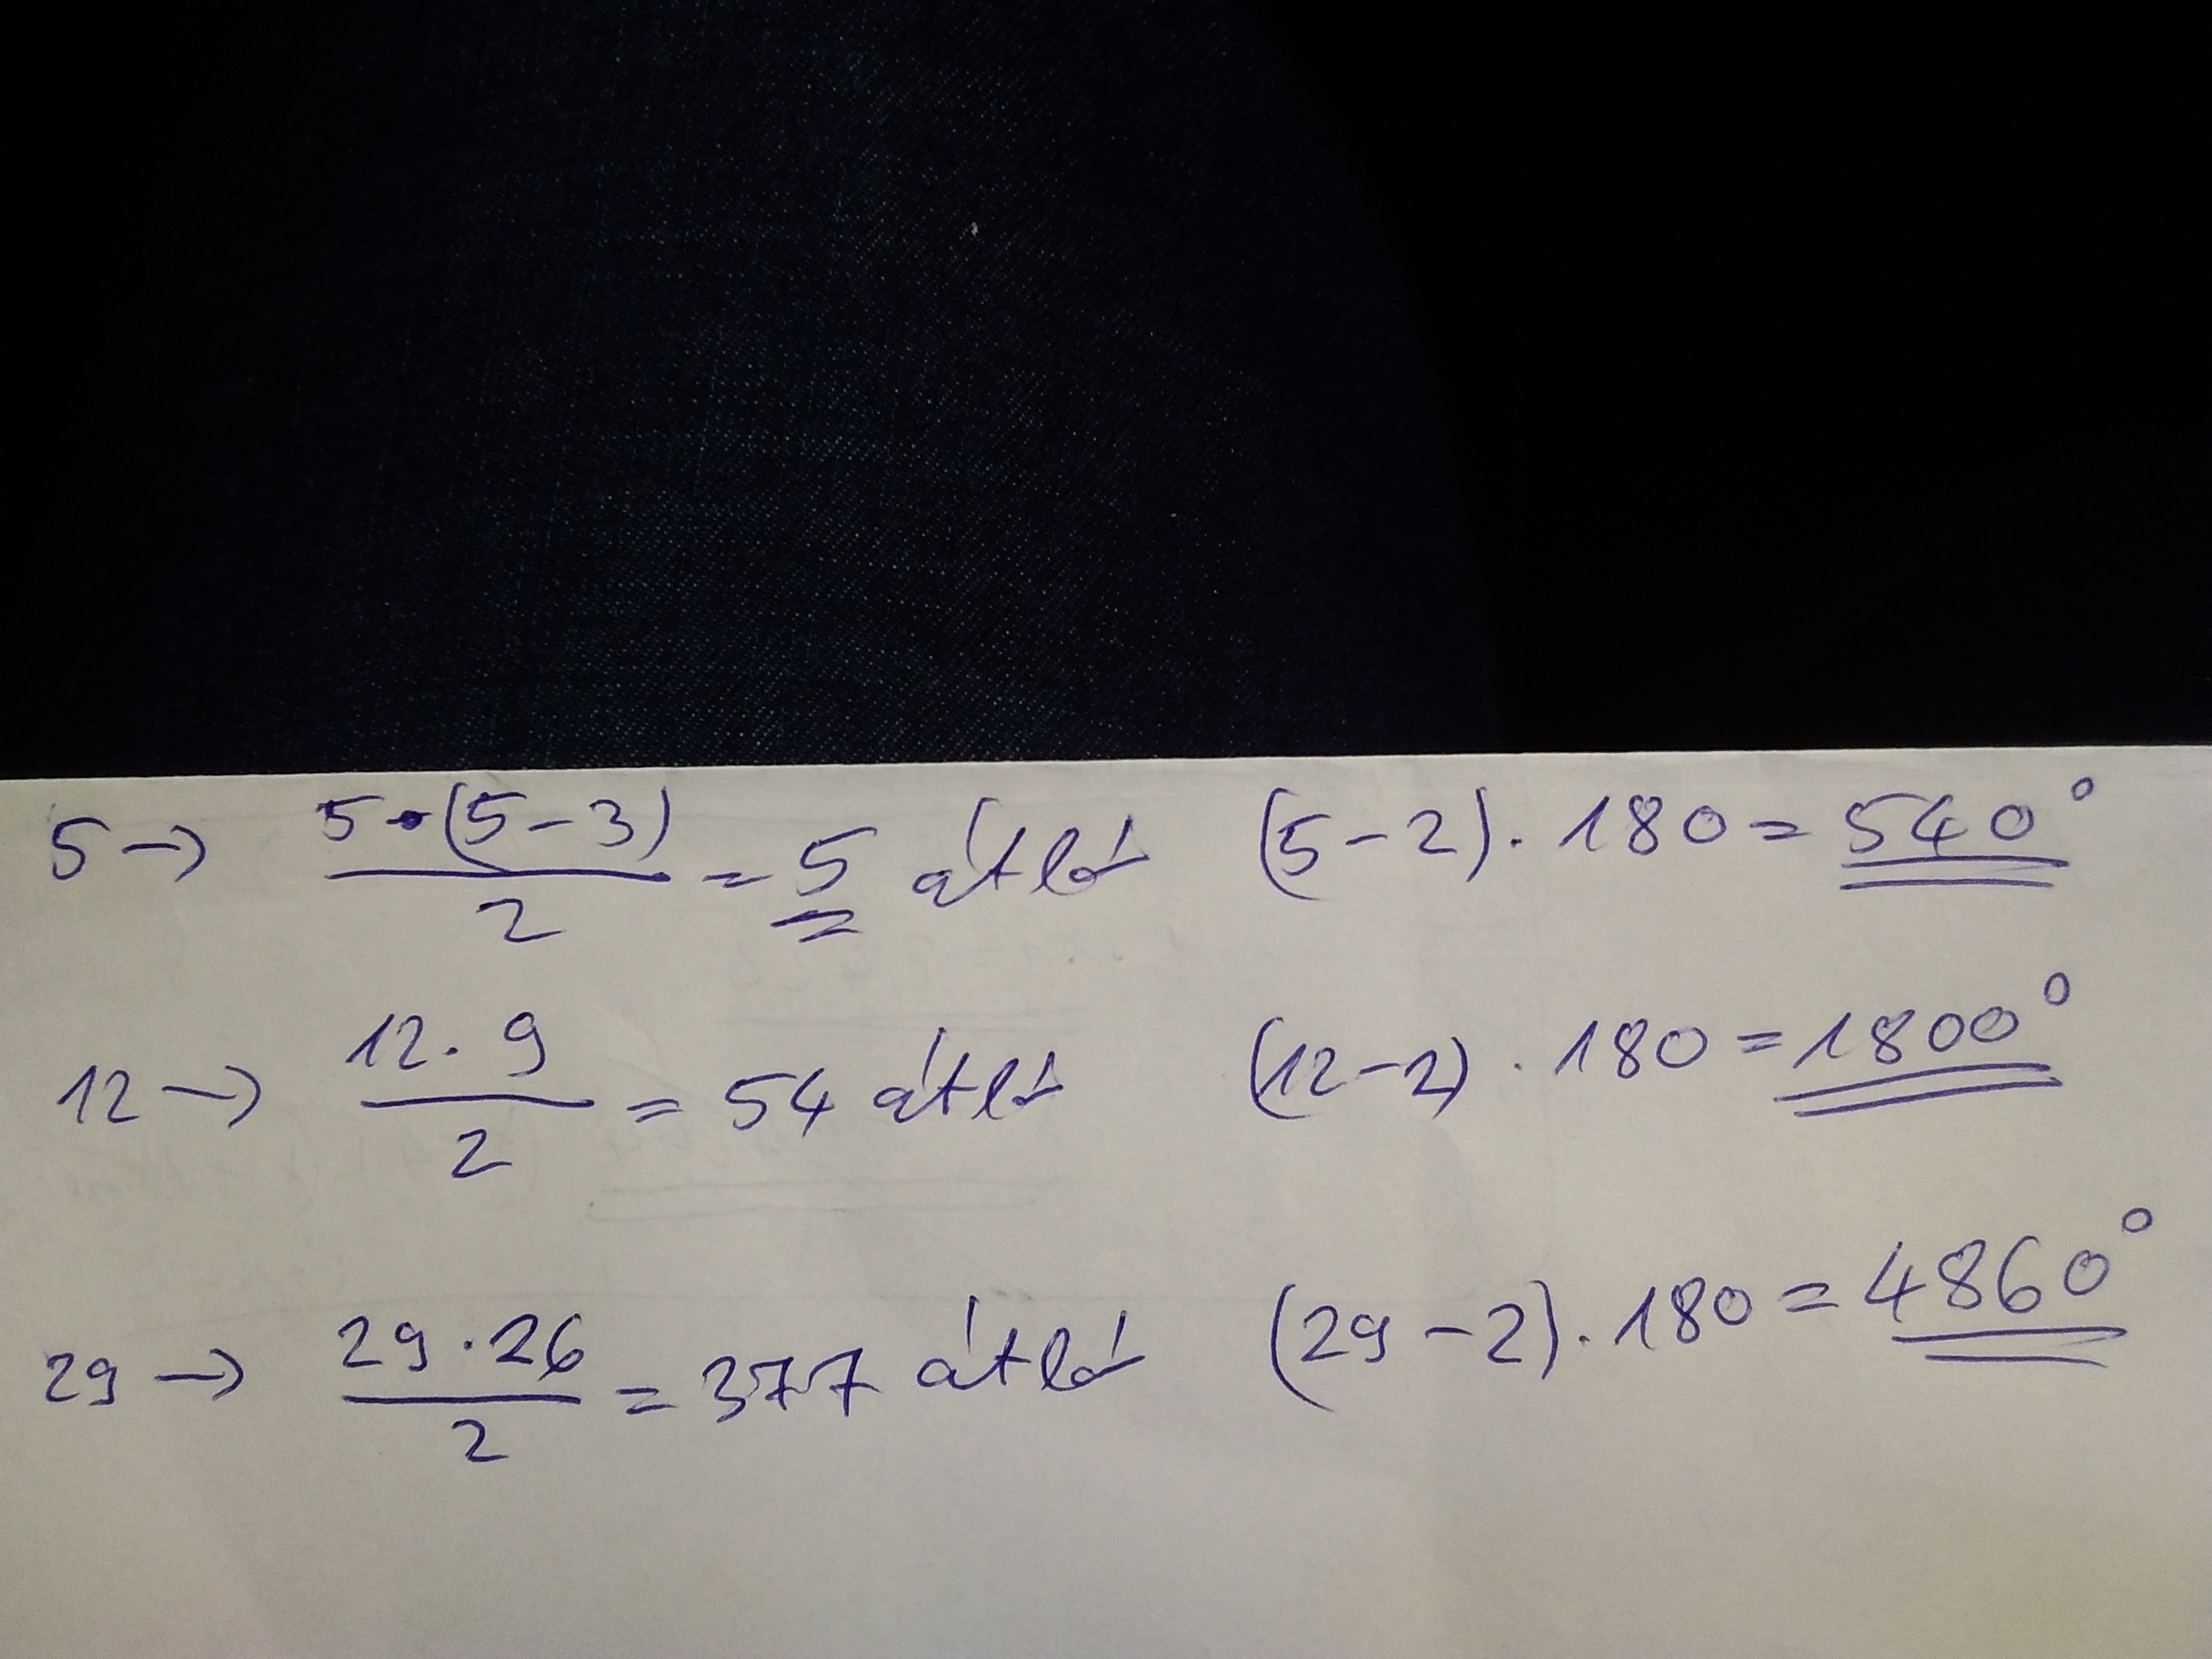 5 → 5·(5-3)/2 = 5 átló (5-2)·180 = 540°
12 → 12·9/2 = 54 átló (12-2)·180 = 1800°
29 → 29·26/2 = 377 átló (29-2)·180 = 4860°